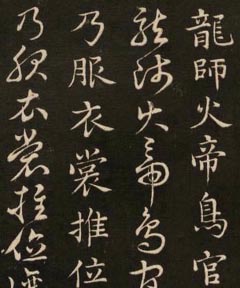 龍師火帝鳥官
龍師火帝鳥官
乃服衣裳推位
乃服衣裳推位